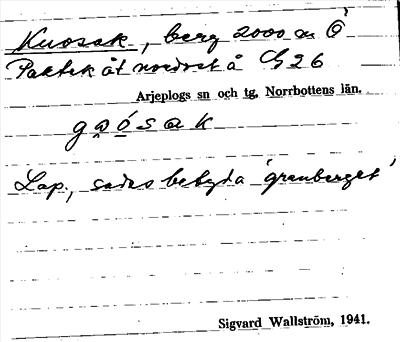 Kuosak, berg 2000 m Ö
Paktek åt nordost å G26
Arjeplogs sn och tg, Norrbottens län.
gọọ́sak
Lap., sades betyda 'granberget'
Sigvard Wallström, 1941.